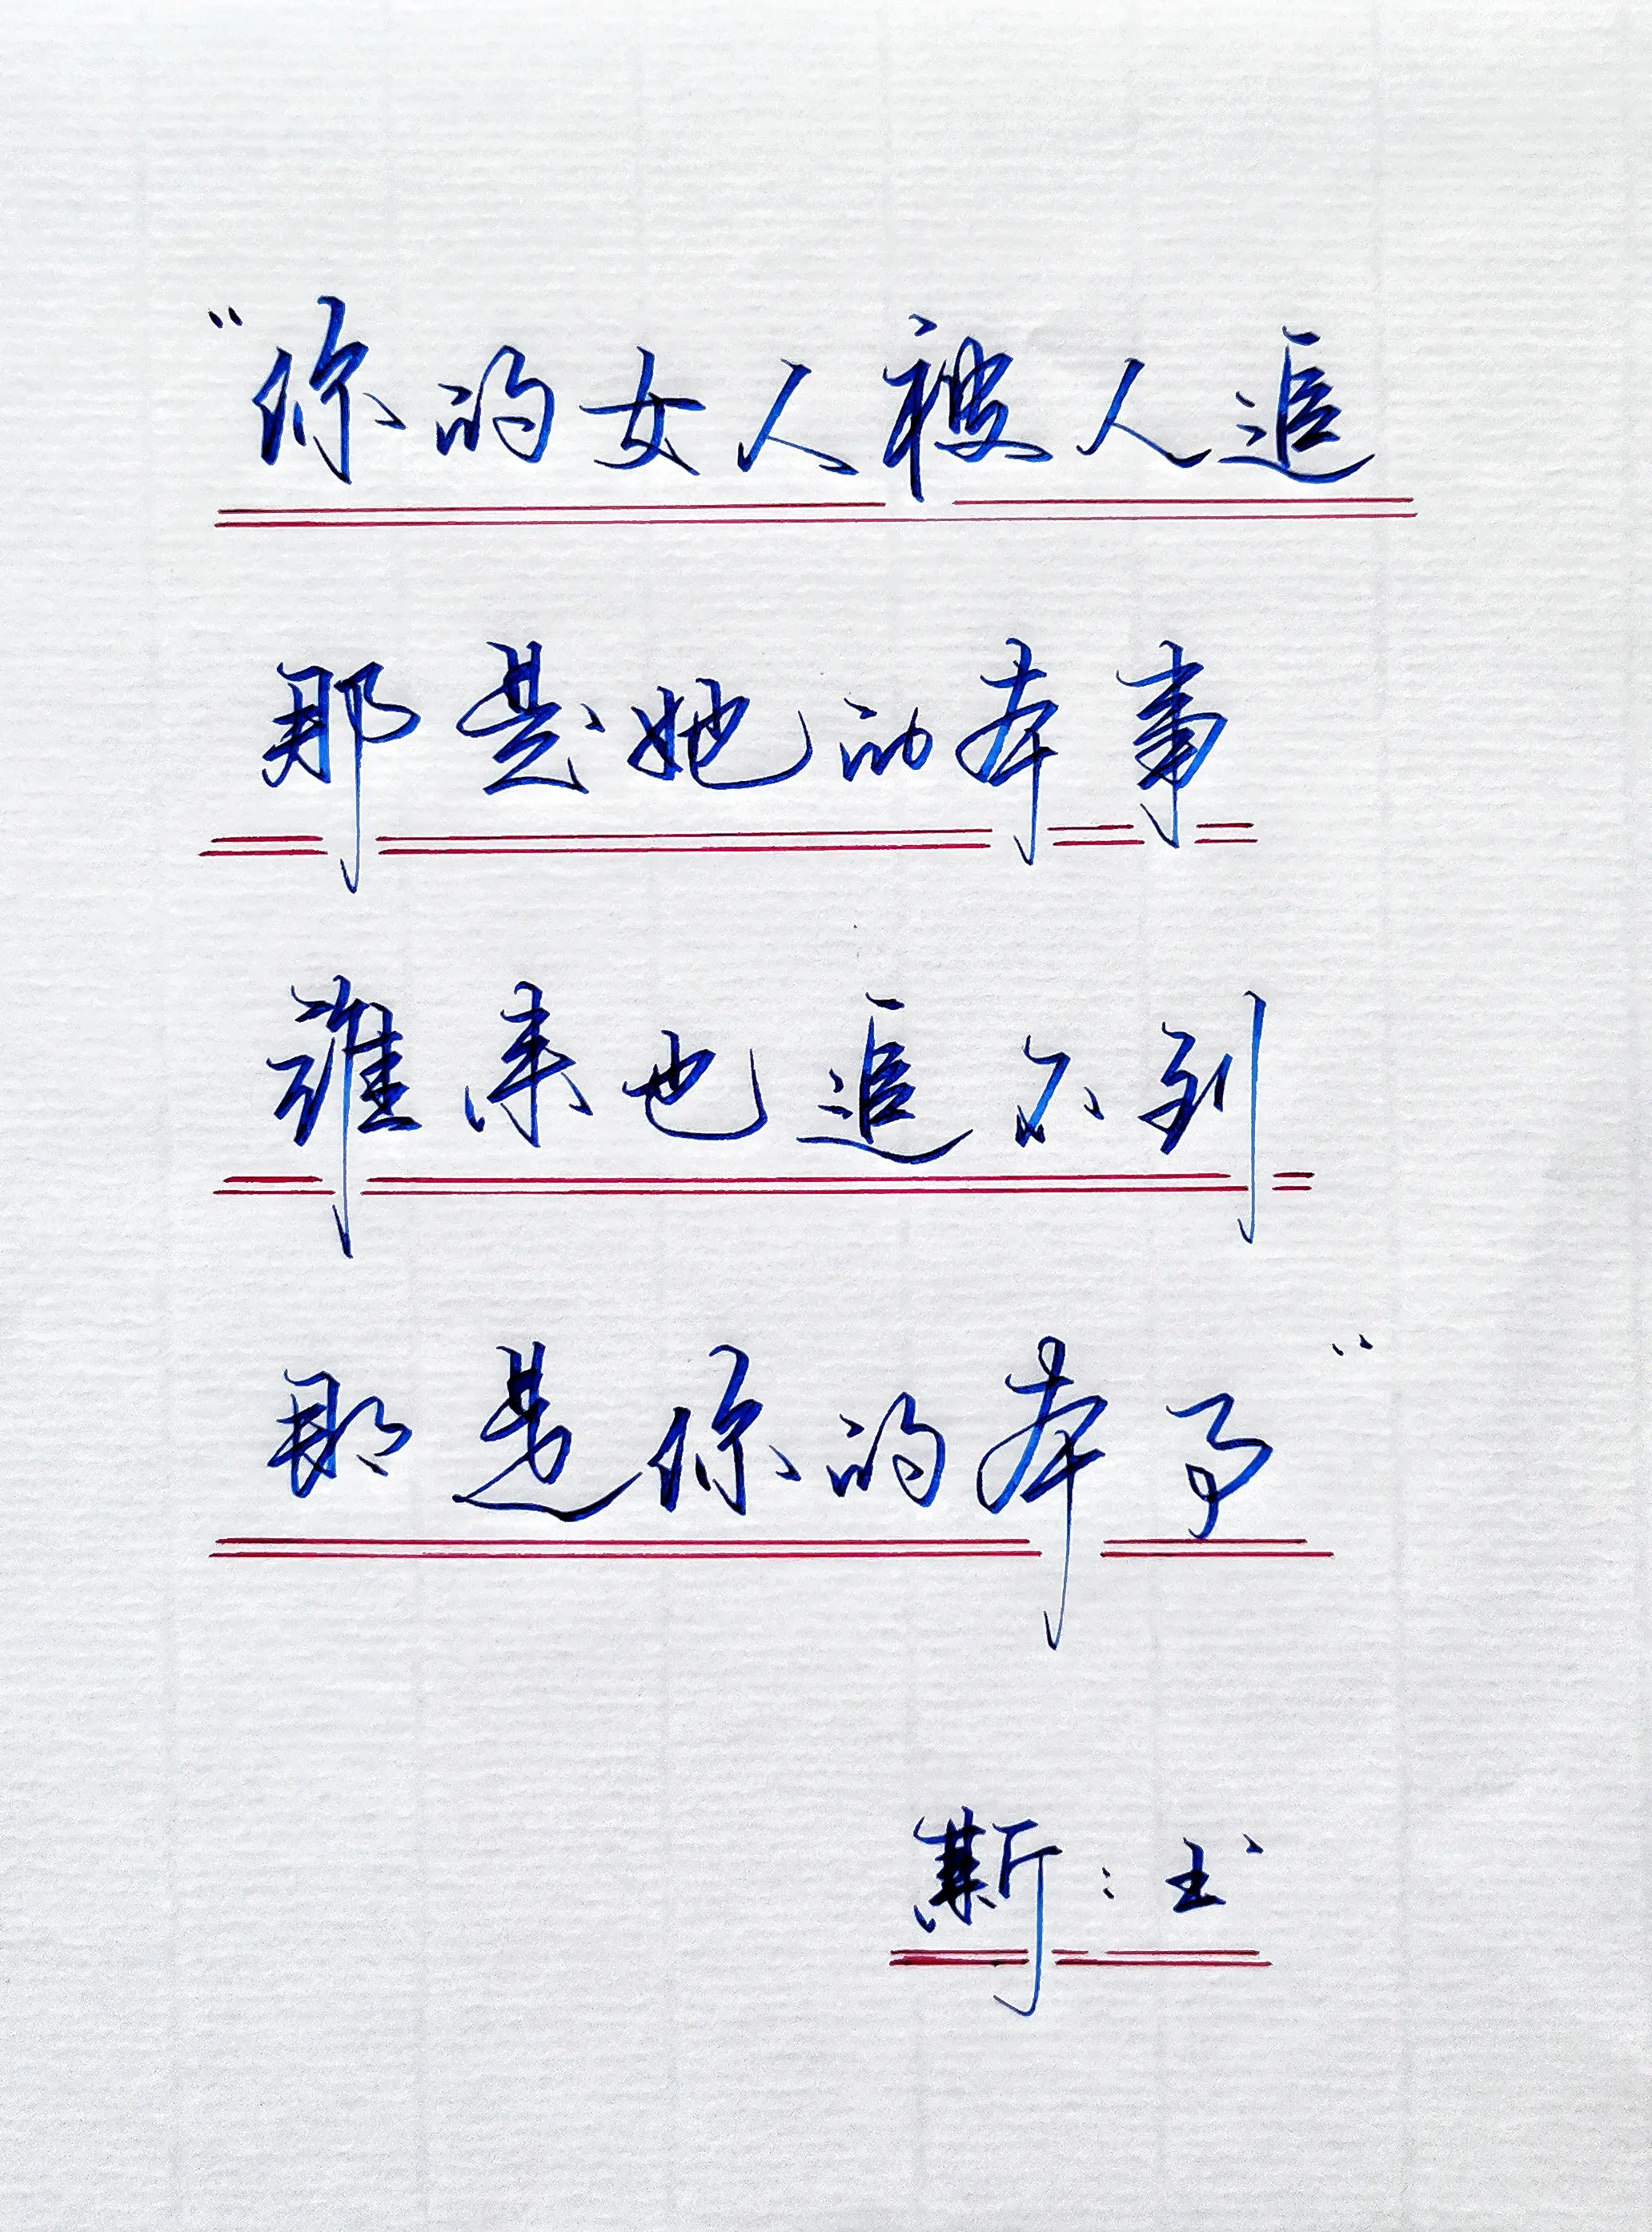 “你的女人被人追
那是她的本事
谁来也追不到
那是你的本事”
斯：书